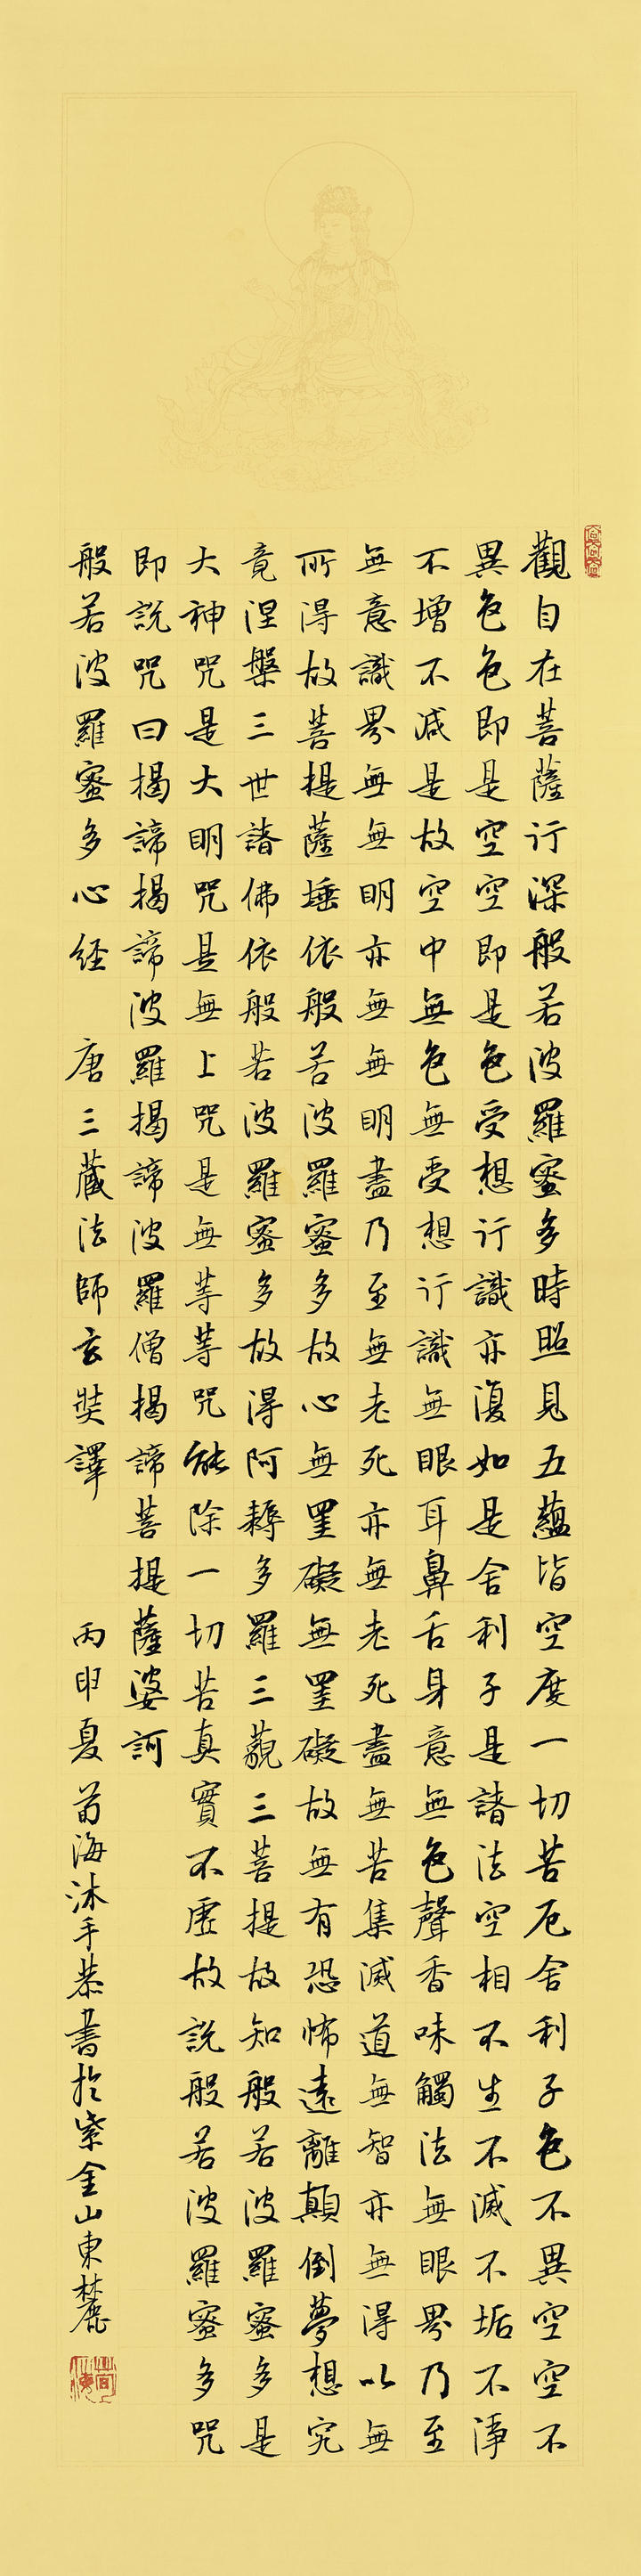 觀自在菩薩行深般若波羅蜜多時照見五蘊皆空度一切苦厄舍利子色不異空空不
異色色即是空空即是色受想行識亦復如是舍利子是諸法空相不生不滅不垢不淨
不增不減是故空中無色無受想行識無眼耳鼻舌身意無色聲香味觸法無眼界乃至
無意識界無無明亦無無明盡乃至無老死亦無老死盡無苦集滅道無智亦無得以無
所得故菩提薩埵依般若波羅蜜多故心無罣礙無罣礙故無有恐怖遠離顛倒夢想究
竟涅槃三世諸佛依般若波羅蜜多故得阿耨多羅三藐三菩提故知般若波羅蜜多是
大神咒是大明咒是無上咒是無等等咒能除一切苦真實不虛故說般若波羅蜜多咒
即說咒曰揭諦揭諦波羅揭諦波羅僧揭諦菩提薩婆訶
般若波羅蜜多心经 唐三藏法師玄奘譯 丙申夏 海沐手恭書於紫金山東麓